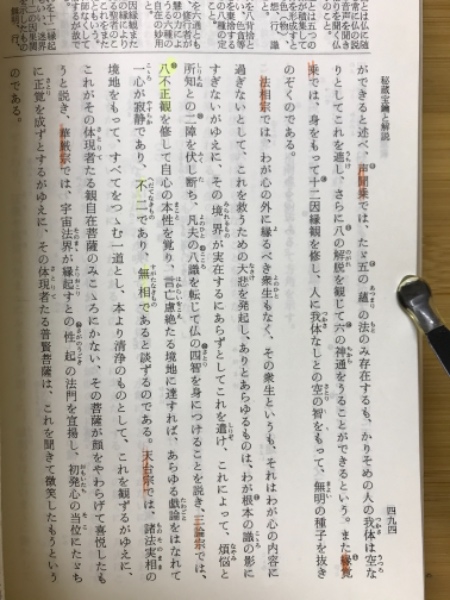 秘蔵宝鑰と解説
四九四
ができると述べ、声聞乗では、たゞ五の蘊の法のみ存在するも、かりそめの人の我体は空な
りとしてこれを遮し、さらに八の解脱を観じて六の神通をうることができるという。また縁覚
乗では、身をもって十二因縁観を修し、人に我体なしとの空の智をもって、無明の種子を抜き
のぞくのである。
法相宗では、わが心の外に縁るべき衆生もなく、その衆生というも、それはわが心の内容に
過ぎないとして、これを救うための大悲を発起し、ありとあらゆるものは、わが根本の識の影に
すぎないがゆえに、その境界が実在するにあらずとしてこれを遣け、これによって、煩悩と
所知との二障を伏し断ち、凡夫の八識を転じて仏の四智を身につけることを説き、三論宗では、
八不正観を修して自心の本性を覚り、言亡慮絶たる境地に達すれば、あらゆる戯論をはなれて
一心が寂静であり、不二であり、無相であると談ずるのである。天台宗では、諸法実相の
境地をもって、すべてをつゝむ一道とし、本より清浄のものとして、これを観ずるがゆえに、
これがその体現者たる観自在菩薩のみこゝろにかない、その菩薩が顔をやわらげて喜悦したも
うと説き、華厳宗では、宇宙法界が縁起すとの性起の法門を宣揚し、初発心の当位にたゞち
に正覚を成ずとするがゆえに、その体現者たる普賢菩薩は、これを聞きて微笑したもうという
のである。